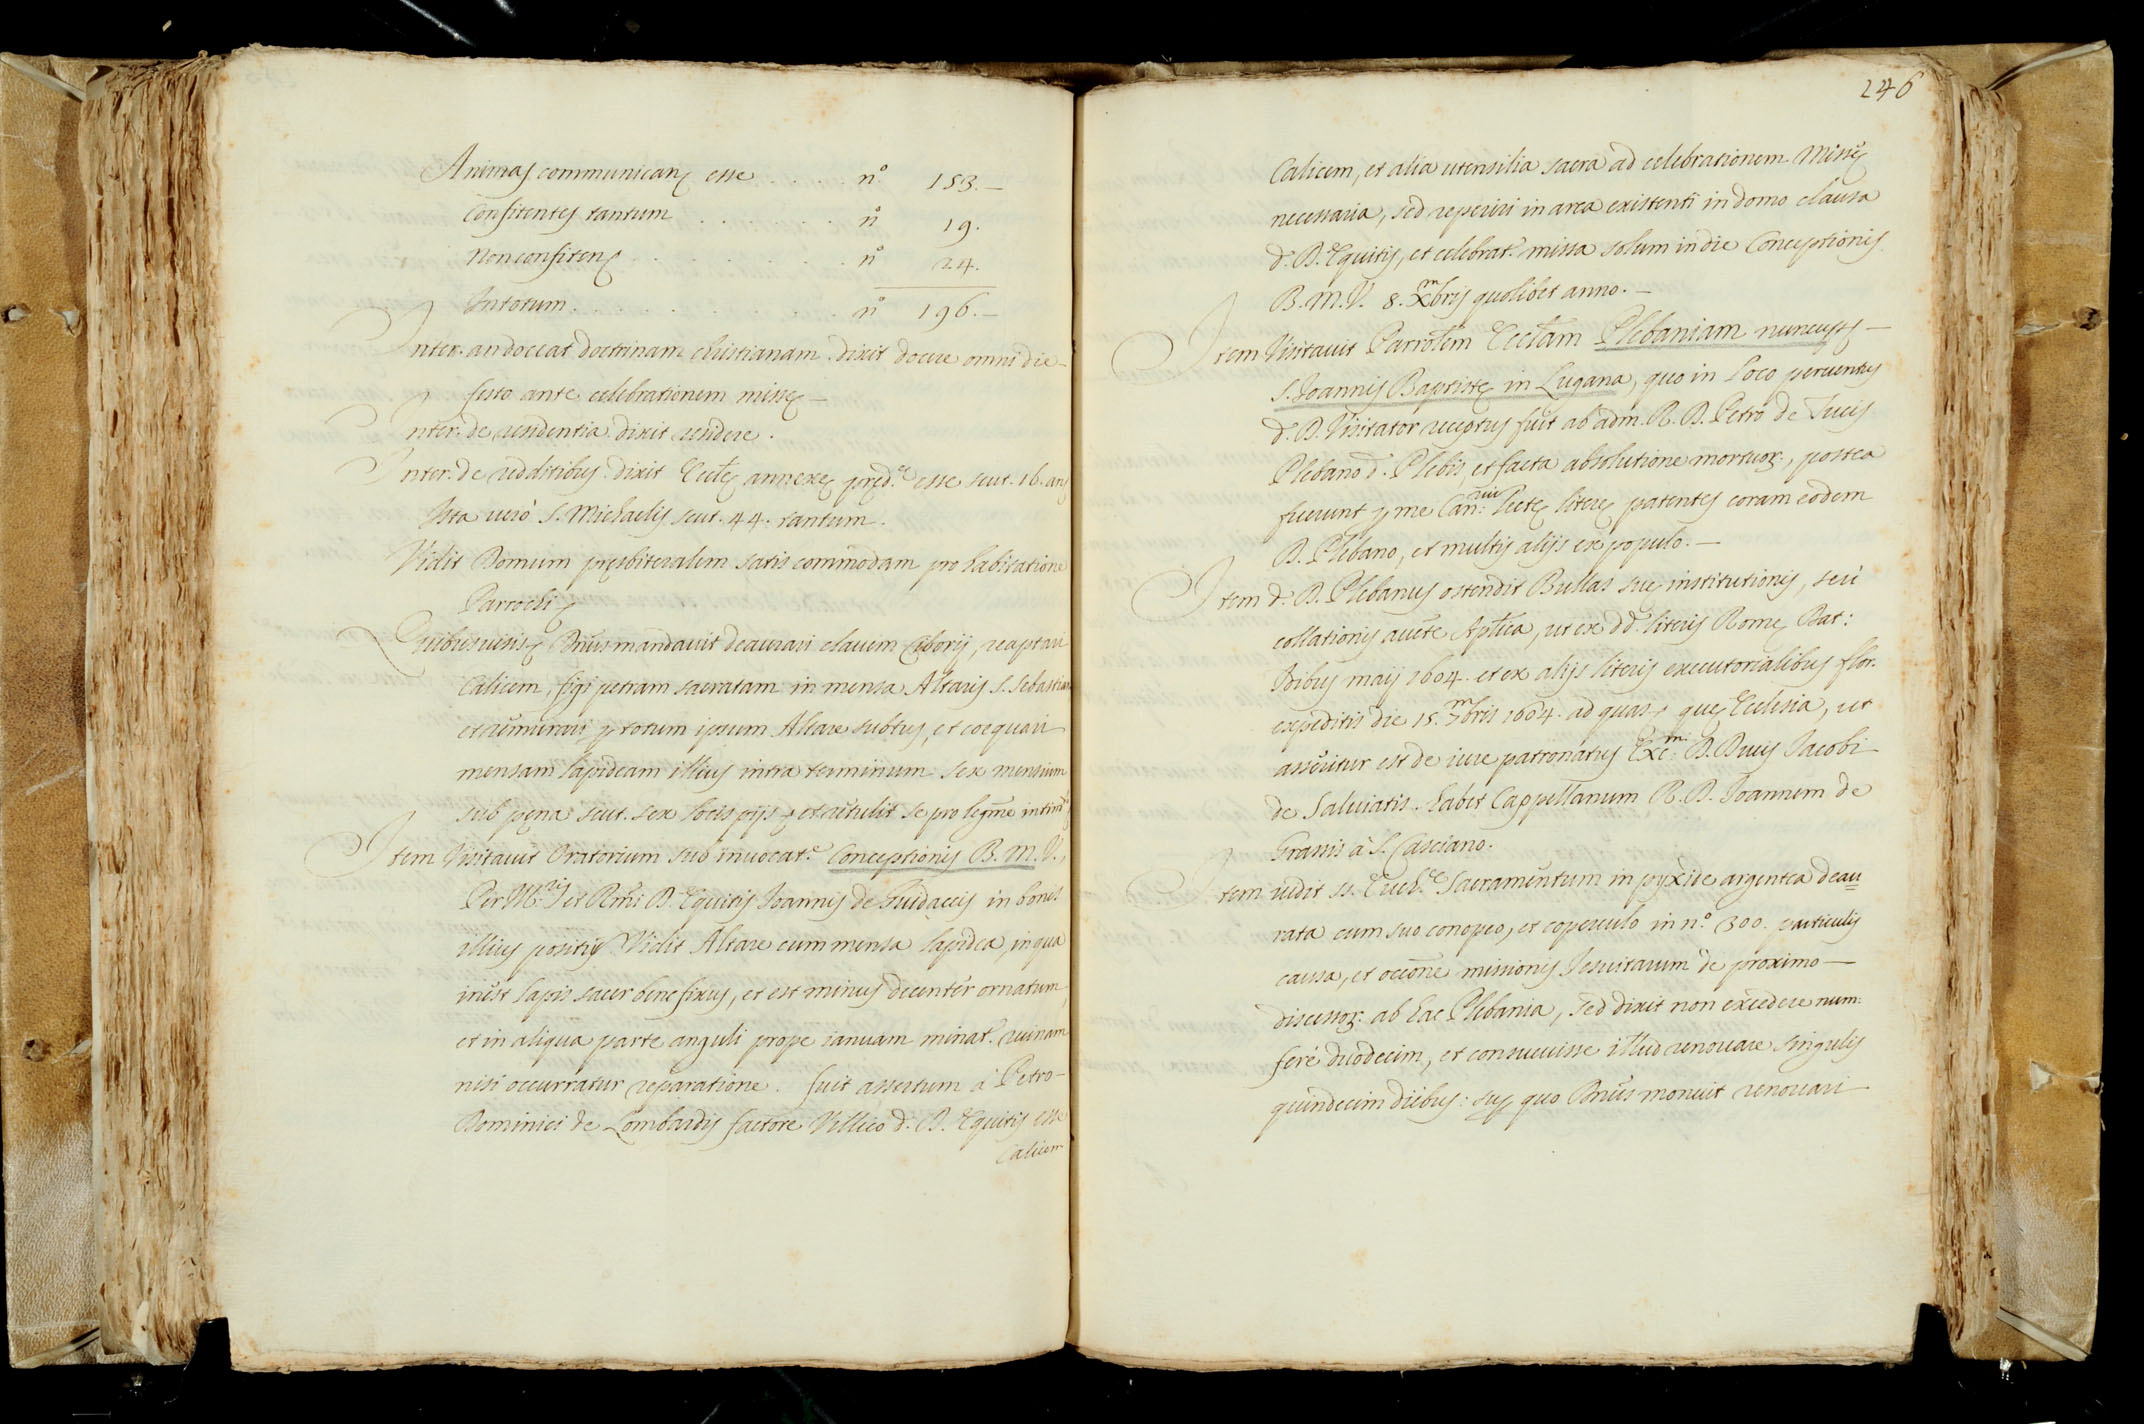 Animas communicanς esse . . . . . n.º 153.—
Confitentes tantum . . . . . . . nº 19.
Non confitenς . . . . . . . . nº 24.
In totum. . . . . . . . . . nº 196.—
Inter. an doceat doctrinam christianam. dixit docere omni die
festo ante celebrationem missę—
Inter. de residentia dixit residere.
Inter. de redditibus dixit Eccłę annexę pręd.ę esse scut. 16. an
Ista uerò S. Michaelis scut. 44. tantum.
Vidit Domum pręsbiteralem satis commodam pro habitatione
Parrochi
Quibus uisis Dñus mandauit deaurari clauem Ciborij, reaptari
Calicem, figi petram sacratam in mensa Altaris S. Sebastian
et cum murari p totum ipsum Altare subtus, et coequari
mensam lapideam illius intra terminum sex mensium
sub pęna scut. sex locis pijs et retulit se pro legme intim
Item Visitauit Oratorium sub inuocat.e Conceptionis B. M. V.,
Per Ill. et Rm: D. Equitis Joannis de Guidaccis in bonis
illius positū Vidit Altare cum mensa lapidea, in qua
inest lapis sacer bene fixus, et est minus decenter ornatum,
et in aliqua parte anguli prope ianuam minat. ruinam
nisi occurratur reparatione. fuit assertum à Petro—
Dominici de Lombardis factore Villico d. D. Equitis esse
Calicem
246
Calicem, et alia utensilia sacra ad celebrationem Missę
necessaria, sed reperiri in arca existenti in domo clausa
d. D. Equitis, et celebrat. missa solum in die Conceptionis
B. M. V. 8. Xmbris quolibet anno.—
Item Visitauit Parrolem Eccłam Plebaniam nuncup—
S. Joannis Baptistę in Lugana, quo in loco peruentus
d. D. Visitator receptus fuit ab adm. R. D. Petro de Tucis
Plebano d. Plebis, et facta absolutione mortuoꝝ, postea
fuerunt p me Can: lectę literę patentes coram eodem
D. Plebano, et multis alijs ex populo.—
Item d. D. Plebanus ostendit Bullas suę institutionis, seù
collationis aucte Apłica, ut ex dd. literis Romę Dat:
Idibus maij 1604. et ex alijs literis executorialibus flor.
expeditis die 15. 7mbris 1604. ad quas quę Ecclesia, ut
asseritur est de iure patronatus Exc.m D. Ducis Jacobi
de Saluiatis. habet Cappellanum R. D. Joannem de
Grassis à S. Casciano.
Item uidit ss. Euch.e Sacramentum in pyxide argentea deau=
rata cum suo conopeo, et coperculo in n.º 300. particulis
causa, et occone missionis Jesuitarum de proximo—
discessoꝝ ab hac Plebania, sed dixit non excedere num:
ferè duodecim, et consueuisse illud renouare singulis
quindecim diebus: sup quo Dnus monuit renouari